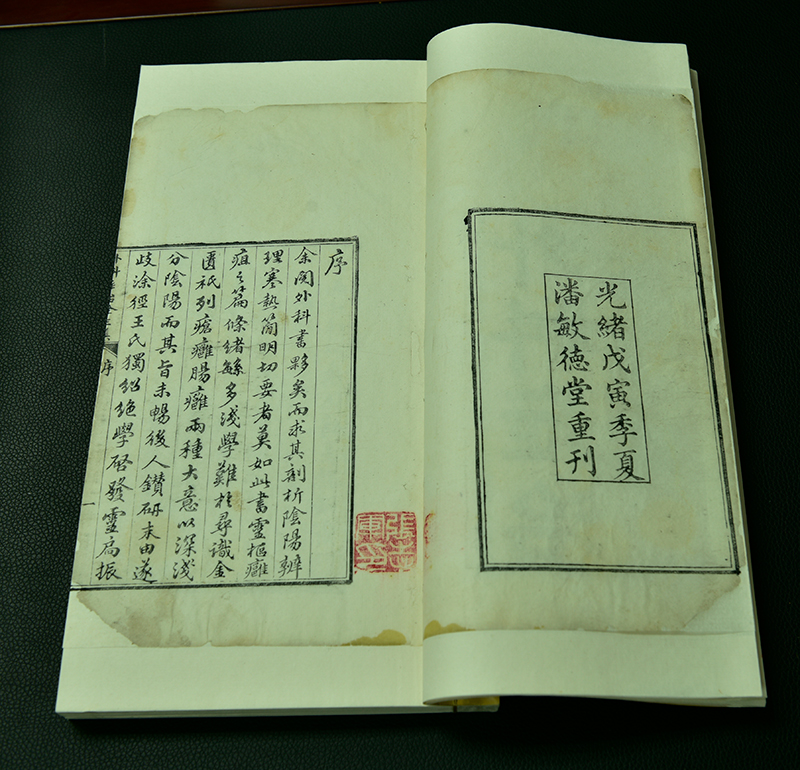 光緒戊寅季夏
潘敏德堂重刊
序
余閱外科書夥矣而求其剖析陰陽辨
理寒熱簡明切要者莫如此書靈樞癰
疽之篇條緒緐多淺學難於尋識金
匱祇列瘡癰腸癰兩種大意以深淺
分陰陽而其旨未暢後人鑽研末由遂
歧涂徑王氏獨紹絕學啓發靈扃振
序
一